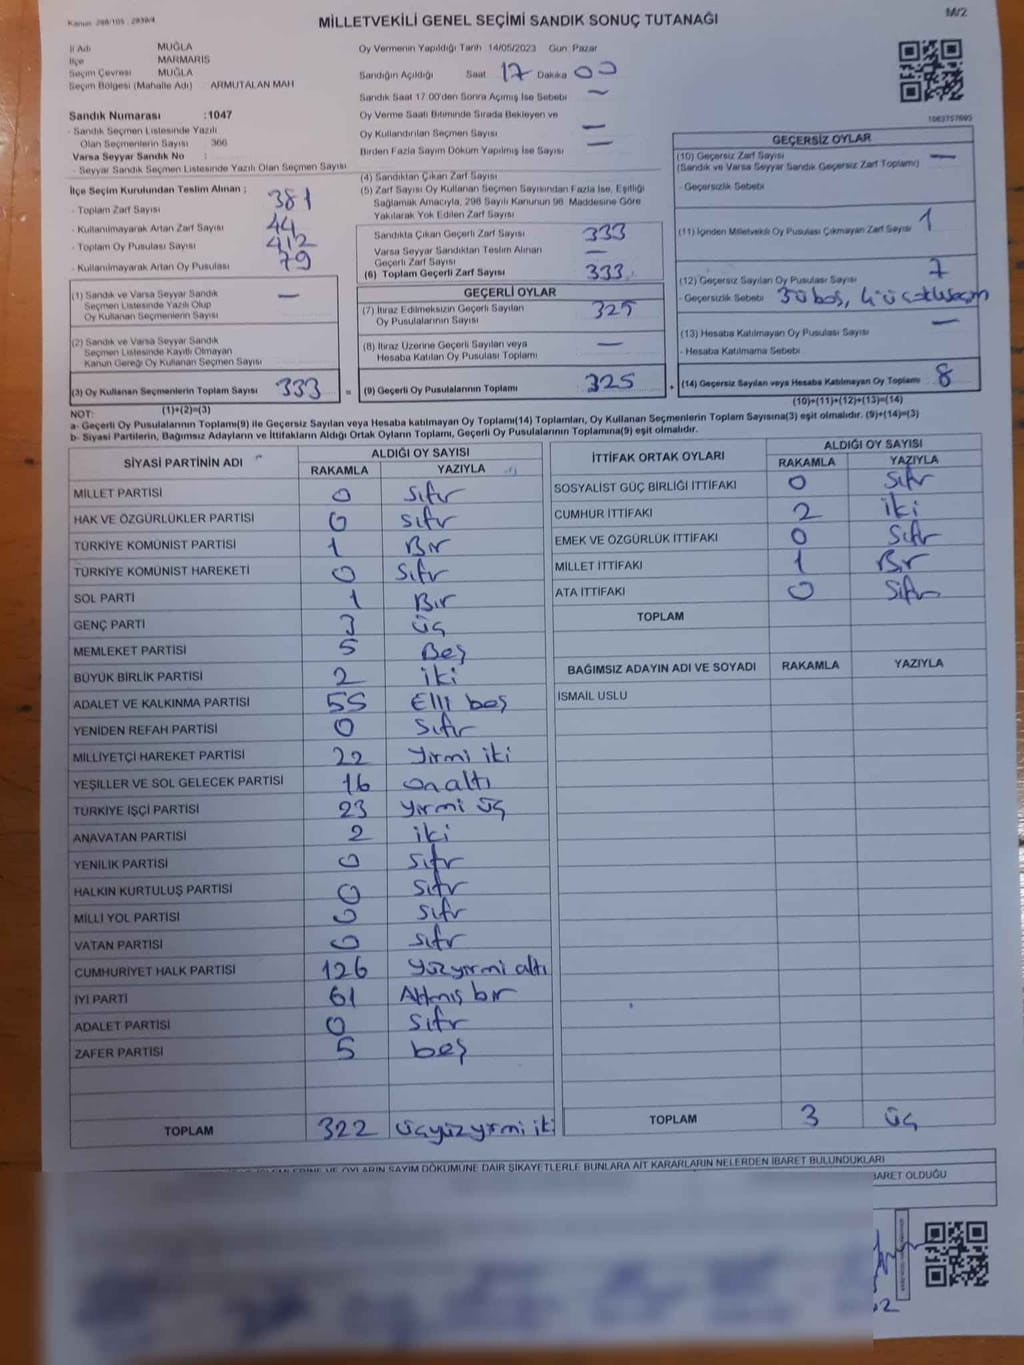 Kanun 298/105 , 2839/4
M/2
MİLLETVEKİLİ GENEL SEÇİMİ SANDIK SONUÇ TUTANAĞI
İl Adı MUĞLA
İlçe MARMARİS
Seçim Çevresi MUĞLA
Seçim Bölgesi (Mahalle Adı) ARMUTALAN MAH
Sandık Numarası : 1047
- Sandık Seçmen Listesinde Yazılı
Olan Seçmenlerin Sayısı 366
Varsa Seyyar Sandık No :
- Seyyar Sandık Seçmen Listesinde Yazılı Olan Seçmen Sayısı
İlçe Seçim Kurulundan Teslim Alınan ;
- Toplam Zarf Sayısı 381
- Kullanılmayarak Artan Zarf Sayısı 44
- Toplam Oy Pusulası Sayısı 412
- Kullanılmayarak Artan Oy Pusulası 79
(1) Sandık ve Varsa Seyyar Sandık
Seçmen Listesinde Yazılı Olup
Oy Kullanan Seçmenlerin Sayısı —
(2) Sandık ve Varsa Seyyar Sandık
Seçmen Listesinde Kayıtlı Olmayan
Kanun Gereği Oy Kullanan Seçmen Sayısı
(3) Oy Kullanan Seçmenlerin Toplam Sayısı 333 =
(1)+(2)=(3)
Oy Vermenin Yapıldığı Tarih 14/05/2023 Gün: Pazar
Sandığın Açıldığı Saat 17 Dakika 00
Sandık Saat 17.00'den Sonra Açılmış İse Sebebi —
Oy Verme Saati Bitiminde Sırada Bekleyen ve
Oy Kullandırılan Seçmen Sayısı —
Birden Fazla Sayım Döküm Yapılmış İse Sayısı —
(4) Sandıktan Çıkan Zarf Sayısı
(5) Zarf Sayısı Oy Kullanan Seçmen Sayısından Fazla İse, Eşitliği
Sağlamak Amacıyla, 298 Sayılı Kanunun 98. Maddesine Göre
Yakılarak Yok Edilen Zarf Sayısı
Sandıkta Çıkan Geçerli Zarf Sayısı 333
Varsa Seyyar Sandıktan Teslim Alınan
Geçerli Zarf Sayısı —
(6) Toplam Geçerli Zarf Sayısı 333
GEÇERLİ OYLAR
(7) İtiraz Edilmeksizin Geçerli Sayılan
Oy Pusulalarının Sayısı 325
(8) İtiraz Üzerine Geçerli Sayılan veya
Hesaba Katılan Oy Pusulası Toplamı —
(9) Geçerli Oy Pusulalarının Toplamı 325 +
GEÇERSİZ OYLAR
(10) Geçersiz Zarf Sayısı —
(Sandık ve Varsa Seyyar Sandık Geçersiz Zarf Toplamı)
- Geçersizlik Sebebi
(11) İçinden Milletvekili Oy Pusulası Çıkmayan Zarf Sayısı 1
(12) Geçersiz Sayılan Oy Pusulası Sayısı 7
- Geçersizlik Sebebi
(13) Hesaba Katılmayan Oy Pusulası Sayısı —
- Hesaba Katılmama Sebebi
(14) Geçersiz Sayılan veya Hesaba Katılmayan Oy Toplamı 8
(10)+(11)+(12)+(13)=(14)
NOT:
a- Geçerli Oy Pusulalarının Toplamı(9) ile Geçersiz Sayılan veya Hesaba katılmayan Oy Toplamı(14) Toplamları, Oy Kullanan Seçmenlerin Toplam Sayısına(3) eşit olmalıdır. (9)+(14)=(3)
b- Siyasi Partilerin, Bağımsız Adayların ve İttifakların Aldığı Ortak Oyların Toplamı, Geçerli Oy Pusulalarının Toplamına(9) eşit olmalıdır.
SİYASİ PARTİNİN ADI ALDIĞI OY SAYISI
RAKAMLA YAZIYLA
MİLLET PARTİSİ 0 Sıfır
HAK VE ÖZGÜRLÜKLER PARTİSİ 0 Sıfır
TÜRKİYE KOMÜNİST PARTİSİ 1 Bir
TÜRKİYE KOMÜNİST HAREKETİ 0 Sıfır
SOL PARTİ 1 Bir
GENÇ PARTİ 3 üç
MEMLEKET PARTİSİ 5 Beş
BÜYÜK BİRLİK PARTİSİ 2 iki
ADALET VE KALKINMA PARTİSİ 55 Elli beş
YENİDEN REFAH PARTİSİ 0 Sıfır
MİLLİYETÇİ HAREKET PARTİSİ 22 Yirmi iki
YEŞİLLER VE SOL GELECEK PARTİSİ 16 onaltı
TÜRKİYE İŞÇİ PARTİSİ 23 yirmi üç
ANAVATAN PARTİSİ 2 iki
YENİLİK PARTİSİ 0 Sıfır
HALKIN KURTULUŞ PARTİSİ 0 Sıfır
MİLLİ YOL PARTİSİ 0 Sıfır
VATAN PARTİSİ 0 Sıfır
CUMHURİYET HALK PARTİSİ 126 yüzyirmi altı
İYİ PARTİ 61 Altmış bir
ADALET PARTİSİ 0 Sıfır
ZAFER PARTİSİ 5 beş
TOPLAM 322 üçyüzyirmi iki
İTTİFAK ORTAK OYLARI ALDIĞI OY SAYISI
RAKAMLA YAZIYLA
SOSYALİST GÜÇ BİRLİĞİ İTTİFAKI 0 Sıfır
CUMHUR İTTİFAKI 2 iki
EMEK VE ÖZGÜRLÜK İTTİFAKI 0 Sıfır
MİLLET İTTİFAKI 1 Bir
ATA İTTİFAKI 0 Sıfır
TOPLAM
BAĞIMSIZ ADAYIN ADI VE SOYADI RAKAMLA YAZIYLA
İSMAİL USLU
TOPLAM 3 üç
OYLARIN SAYIM DÖKÜMÜNE DAİR ŞİKAYETLERLE BUNLARA AİT KARARLARIN NELERDEN İBARET BULUNDUKLARI
İBARET OLDUĞU